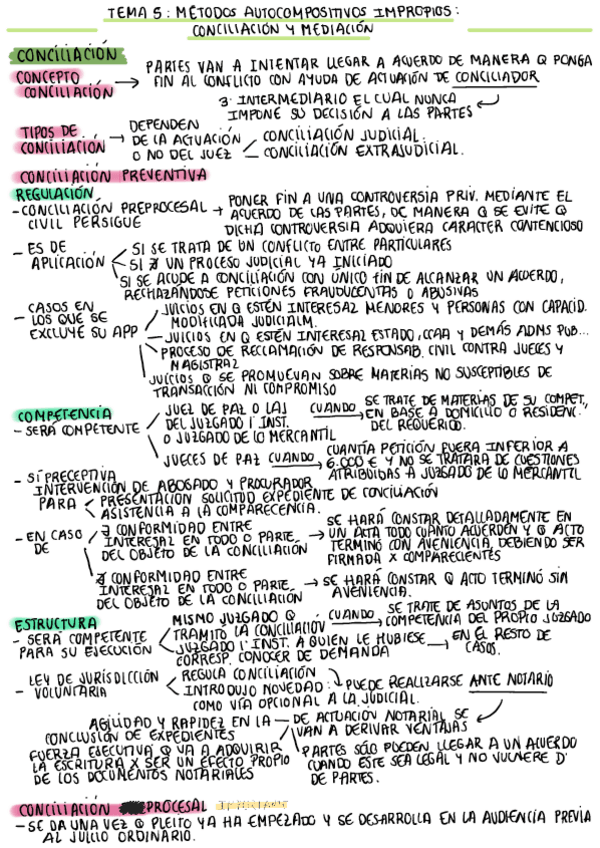 TEMA 5: MÉTODOS AUTOCOMPOSITIVOS IMPROPIOS:
CONCILIACIÓN Y MEDIACIÓN
CONCILIACIÓN
CONCEPTO CONCILIACIÓN → PARTES VAN A INTENTAR LLEGAR A ACUERDO DE MANERA Q PONGA
FIN AL CONFLICTO CON AYUDA DE ACTUACIÓN DE CONCILIADOR
3º INTERMEDIARIO EL CUAL NUNCA
IMPONE SU DECISIÓN A LAS PARTES
TIPOS DE CONCILIACIÓN → DEPENDEN
DE LA ACTUACIÓN
O NO DEL JUEZ
CONCILIACIÓN JUDICIAL.
CONCILIACIÓN EXTRAJUDICIAL.
CONCILIACIÓN PREVENTIVA
REGULACIÓN
- CONCILIACIÓN PREPROCESAL
CIVIL PERSIGUE
→ PONER FIN A UNA CONTROVERSIA PRIV. MEDIANTE EL
ACUERDO DE LAS PARTES, DE MANERA Q SE EVITE Q
DICHA CONTROVERSIA ADQUIERA CARACTER CONTENCIOSO
- ES DE
APLICACIÓN
SI SE TRATA DE UN CONFLICTO ENTRE PARTICULARES
SI ∄ UN PROCESO JUDICIAL YA INICIADO
SI SE ACUDE A CONCILIACIÓN CON ÚNICO FIN DE ALCANZAR UN ACUERDO,
RECHAZÁNDOSE PETICIONES FRAUDULENTAS O ABUSIVAS
- CASOS EN
LOS QUE SE
EXCLUYE SU APP
JUICIOS EN Q ESTÉN INTERESAZ MENORES Y PERSONAS CON CAPACID.
MODIFICADA JUDICIALM.
JUICIOS EN Q ESTÉN INTERESAZ ESTADO, CCAA Y DEMÁS ADMS PUB...
PROCESO DE RECLAMACIÓN DE RESPONSAB. CIVIL CONTRA JUECES Y
MAGISTRAZ
JUICIOS Q SE PROMUEVAN SOBRE MATERIAS NO SUSCEPTIBLES DE
TRANSACCIÓN NI COMPROMISO
COMPETENCIA
- SERÁ COMPETENTE
JUEZ DE PAZ O LAS
DEL JUZGADO 1º INST.
O JUZGADO DE LO MERCANTIL
CUANDO → SE TRATE DE MATERIAS DE SU COMPET.,
EN BASE A DOMICILIO O RESIDENC.
DEL REQUERIDO.
JUECES DE PAZ CUANDO → CUANTÍA PETICIÓN FUERA INFERIOR A
6.000 € Y NO SE TRATARA DE CUESTIONES
ATRIBUIDAS A JUZGADO DE LO MERCANTIL
- SÍ PRECEPTIVA
INTERVENCIÓN DE ABOGADO Y PROCURADOR
PARA
PRESENTACIÓN SOLICITUD EXPEDIENTE DE CONCILIACIÓN
ASISTENCIA A LA COMPARECENCIA.
- EN CASO
DE
∃ CONFORMIDAD ENTRE
INTERESAZ EN TODO O PARTE
DEL OBJETO DE LA CONCILIACIÓN
→ SE HARÁ CONSTAR DETALLADAMENTE EN
UN ACTA TODO CUANTO ACUERDEN Y Q ACTO
TERMINÓ CON AVENIENCIA, DEBIENDO SER
FIRMADA X COMPARECIENTES
∄ CONFORMIDAD ENTRE
INTERESAZ EN TODO O PARTE
DEL OBJETO DE LA CONCILIACIÓN
→ SE HARÁ CONSTAR Q ACTO TERMINÓ SIN
AVENIENCIA.
ESTRUCTURA
- SERÁ COMPETENTE
PARA SU EJECUCIÓN
MISMO JUZGADO Q
TRAMITÓ LA CONCILIACIÓN
CUANDO → SE TRATE DE ASUNTOS DE LA
COMPETENCIA DEL PROPIO JUZGADO
JUZGADO 1º INST. A QUIEN LE HUBIESE
CORRESP. CONOCER DE DEMANDA
→ EN EL RESTO DE
CASOS.
- LEY DE JURISDICCIÓN
VOLUNTARIA
REGULA CONCILIACIÓN
INTRODUJO NOVEDAD: PUEDE REALIZARSE ANTE NOTARIO
COMO VÍA OPCIONAL A LA JUDICIAL.
DE ACTUACIÓN NOTARIAL SE
VAN A DERIVAR VENTAJAS
AGILIDAD Y RAPIDEZ EN LA
CONCLUSIÓN DE EXPEDIENTES
FUERZA EJECUTIVA Q VA A ADQUIRIR
LA ESCRITURA X SER UN EFECTO PROPIO
DE LOS DOCUMENTOS NOTARIALES
PARTES SÓLO PUEDEN LLEGAR A UN ACUERDO
CUANDO ESTE SEA LEGAL Y NO VULNERE Dº
DE PARTES.
CONCILIACIÓN PROCESAL
- SE DA UNA VEZ Q PLEITO YA HA EMPEZADO Y SE DESARROLLA EN LA AUDIENCIA PREVIA
AL JUICIO ORDINARIO.